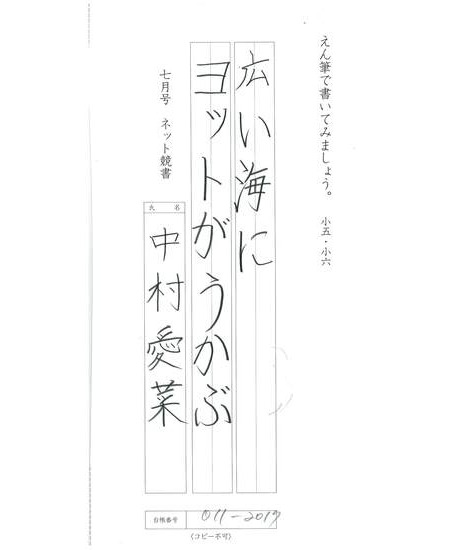 えん筆で書いてみましょう。　小五・小六
広い海に
ヨットがうかぶ
七月号　ネット競書
氏名
中村愛菜
台帳番号　011-2017
（コピー不可）